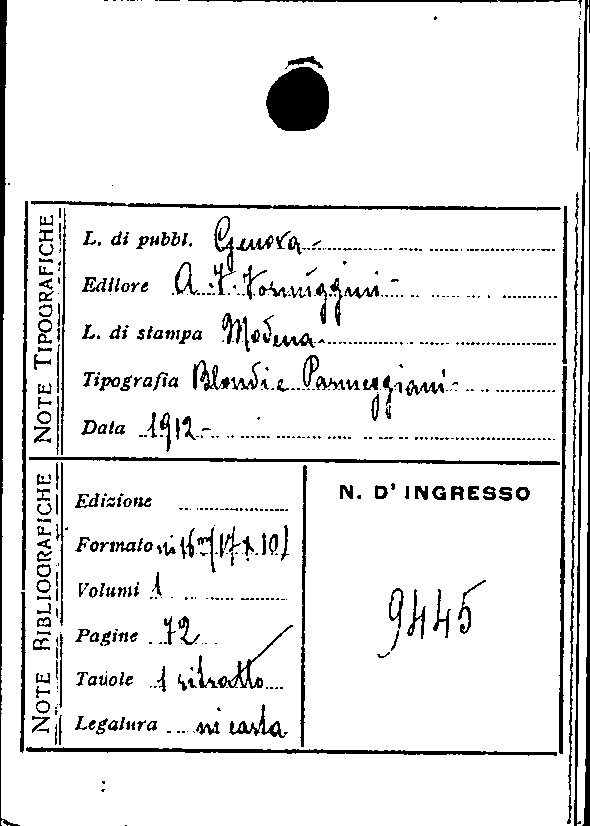 NOTE TIPOGRAFICHE
L. di pubbl. Genova -
Editore A. F. Formiggini -
L. di stampa Modena -
Tipografia Blondi e Parmeggiani -
Data 1912 -
NOTE BIBLIOGRAFICHE
Edizione
Formato in 16mo (17 x 10)
Volumi 1
Pagine 72
Tavole 1 ritratto
Legatura in carta
N. D' INGRESSO
9445